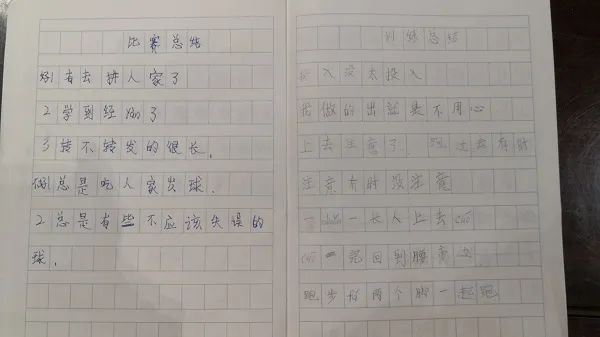 比赛总结
好1有去拼人家了
2学到经验了
3转不转发的很长.
坏1总是吃人家发球.
2总是有些不应该失误的
球.
训练总结
投入没太投入
做的出就是不用心
上去注意了. 跑过去有时
注意有时没注意
一长人上去
回到腰
跑步你两个脚一起跑